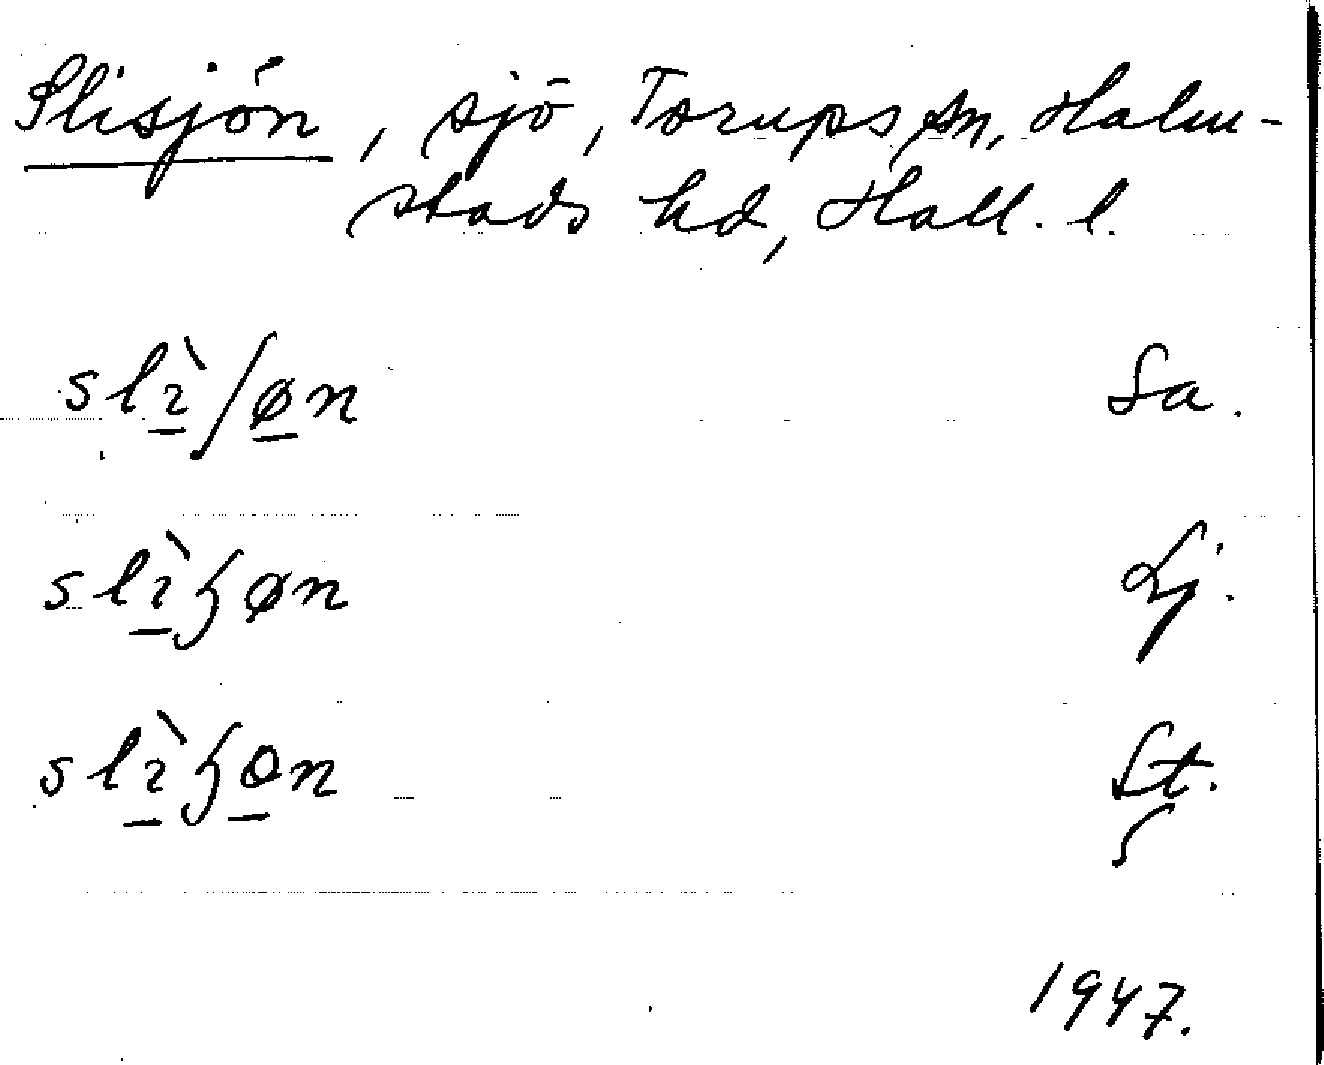 Slisjön, sjö, Torups sn, Halm-
stads hd, Hall. l.
slì̠ʃø̠n Sa.
slì̠ɧøn Lj.
slì̠ɧo̠n St.
1947.